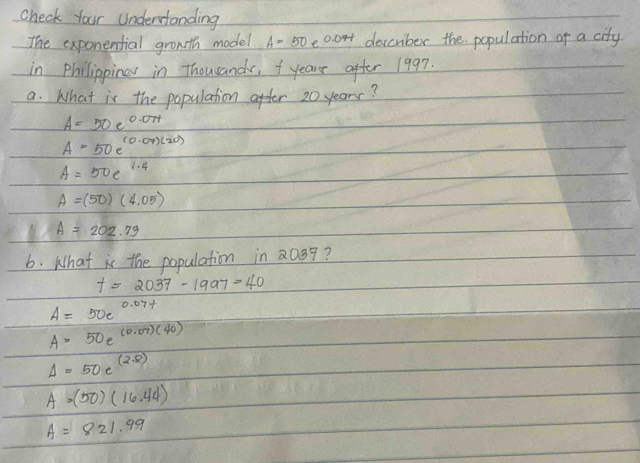 Check Your Understanding
The exponential growth model A = 50 e^0.07t describes the population of a city
in Philippines in Thousands, t years after 1997.
a. What is the population after 20 years?
A = 50 e^0.07t
A = 50 e^(0.07)(20)
A = 50 e^1.4
A = (50) (4.05)
A = 202.79
b. What is the population in 2037?
t = 2037 - 1997 = 40
A = 50e^0.07t
A = 50 e^(0.07)(40)
A = 50 e^(2.8)
A = (50) (16.44)
A = 821.99